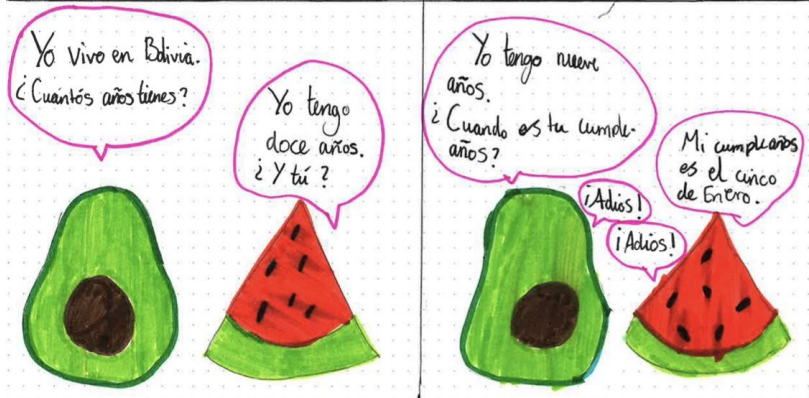 Yo vivo en Bolivia.
¿Cuántos años tienes?
Yo tengo
doce años.
¿Y tú?
Yo tengo nueve
años.
¿Cuando es tu cumple-
años?
¡Adios!
¡Adios!
Mi cumpleaños
es el cinco
de Enero.